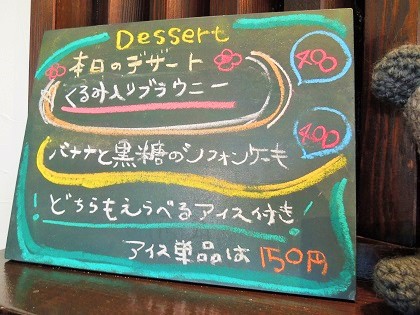 Dessert
本日のデザート
400
くるみ入りブラウニー
400
バナナと黒糖のシフォンケーキ
どちらもえらべるアイス付き!
アイス単品は 150円